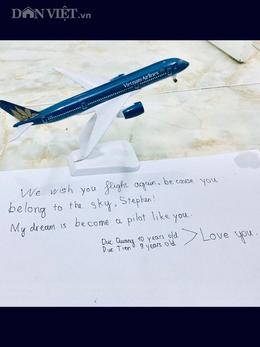 DÂN VIỆT.vn
Vietnam Airlines
We wish you flight again, because you
belong to the sky, Stephan!
My dream is become a pilot like you.
Duc Quang 10 years old
Duc Tien 8 years old
> Love you.